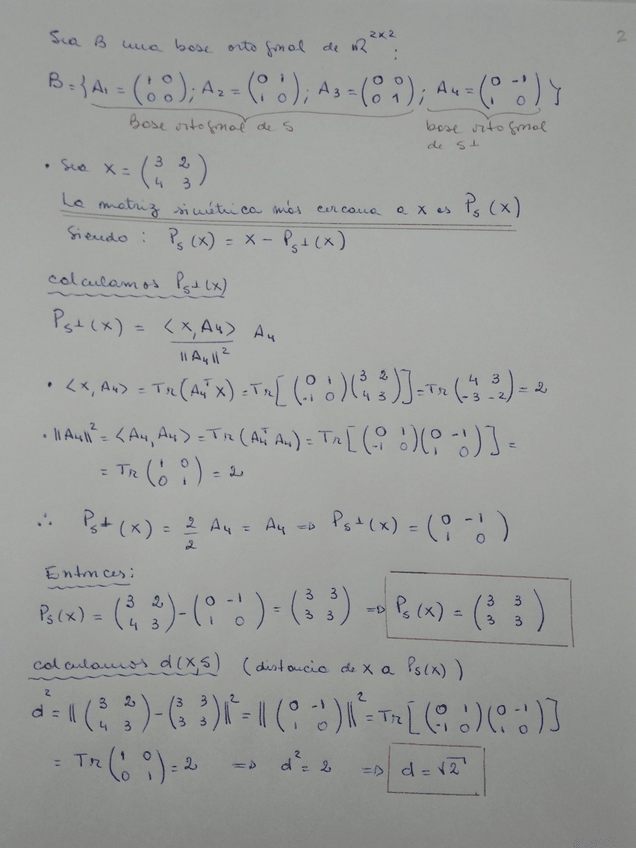 2
Sea B una base ortogonal de ℝ^{2x2}:
B = { A₁ = (1 0; 0 0) ; A₂ = (0 1; 1 0) ; A₃ = (0 0; 0 1) ; A₄ = (0 -1; 1 0) }
Base ortogonal de S base ortogonal
de S⊥
• Sea X = (3 2; 4 3)
La matriz simétrica más cercana a X es P_S(X)
Siendo: P_S(X) = X - P_S⊥(X)
calculamos P_S⊥(X)
P_S⊥(X) = <X, A₄> / ||A₄||² A₄
• <X, A₄> = Tr(A₄ᵀ X) = Tr[(0 1; -1 0)(3 2; 4 3)] = Tr(4 3; -3 -2) = 2
• ||A₄||² = <A₄, A₄> = Tr(A₄ᵀ A₄) = Tr[(0 1; -1 0)(0 -1; 1 0)] =
= Tr(1 0; 0 1) = 2
∴ P_S⊥(X) = 2/2 A₄ = A₄ ⇒ P_S⊥(X) = (0 -1; 1 0)
Entonces:
P_S(X) = (3 2; 4 3) - (0 -1; 1 0) = (3 3; 3 3) ⇒ P_S(X) = (3 3; 3 3)
calculamos d(X,S) (distancia de X a P_S(X))
d² = ||(3 2; 4 3) - (3 3; 3 3)||² = ||(0 -1; 1 0)||² = Tr[(0 1; -1 0)(0 -1; 1 0)]
= Tr(1 0; 0 1) = 2 ⇒ d² = 2 ⇒ d = √2